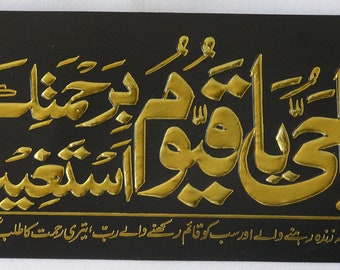 حَيُّ يَا قَيُّومُ بِرَحْمَتِكَ
اَسْتَغِيْ
زندہ رہنے والے اور سب کو قائم رکھنے والے رب! تیری رحمت کا طلب